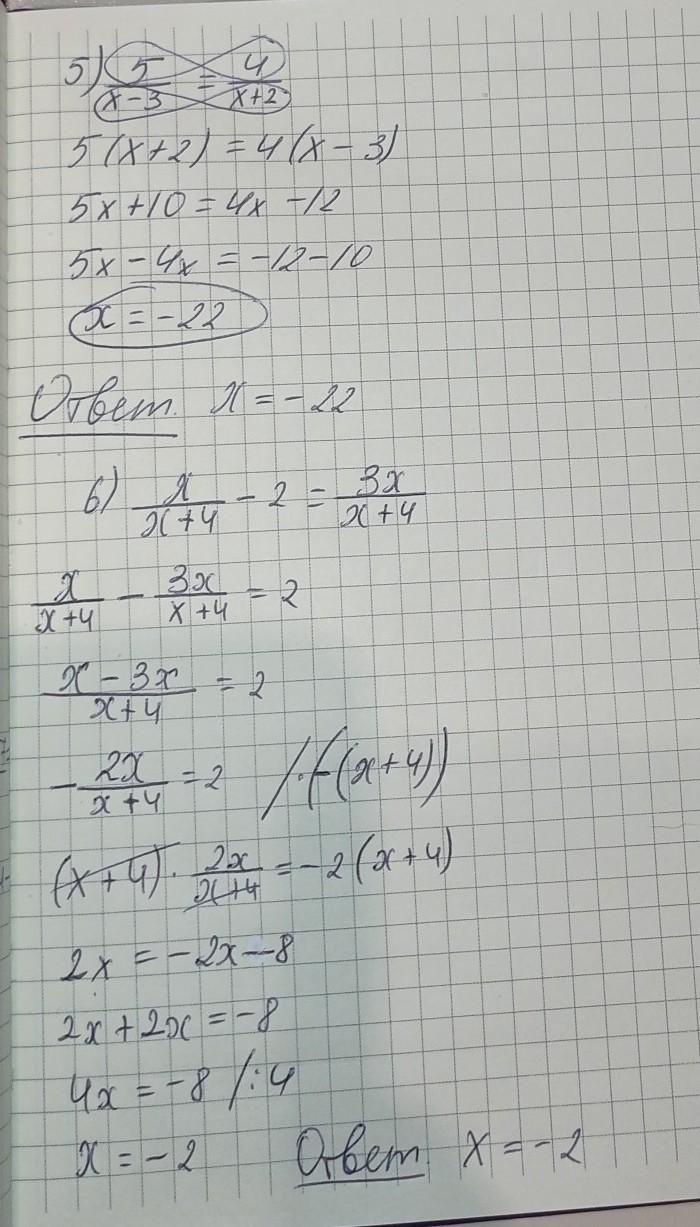 5) 5/(x-3) = 4/(x+2)
5(x+2) = 4(x-3)
5x+10 = 4x-12
5x-4x = -12-10
x = -22
Ответ. x = -22
6) x/(x+4) - 2 = 3x/(x+4)
x/(x+4) - 3x/(x+4) = 2
(x-3x)/(x+4) = 2
-2x/(x+4) = 2 /·(-(x+4))
(x+4) · 2x/(x+4) = -2(x+4)
2x = -2x-8
2x+2x = -8
4x = -8 /:4
x = -2 Ответ. x = -2